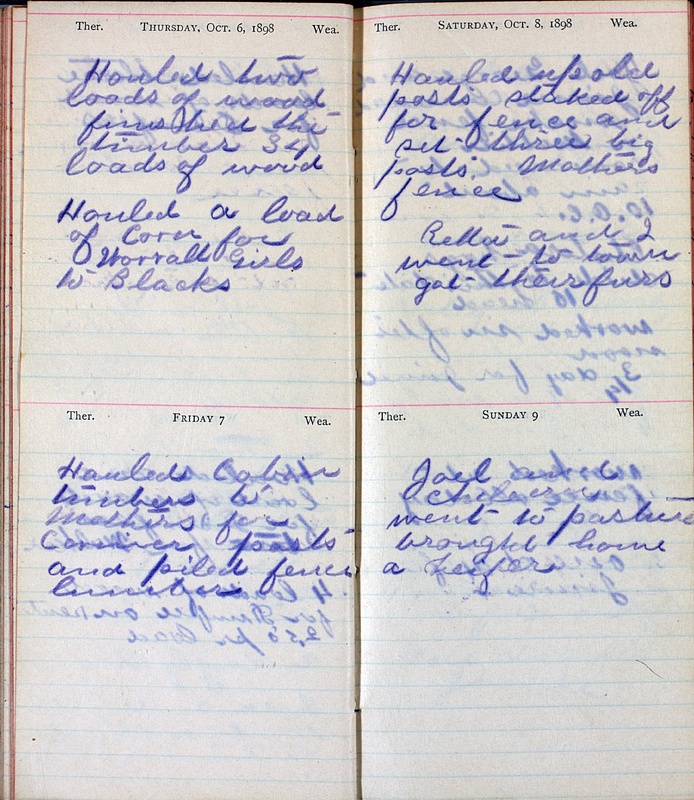 Ther. THURSDAY, OCT. 6, 1898 Wea.
Hauled two
loads of wood
finished the
timber 34
loads of wood
Hauled a load
of Corn for
Worrall Girls
to Blacks
Ther. FRIDAY 7 Wea.
Hauled Cabin
timbers to
Mothers for
Corner posts
and piled fence
lumber
Ther. SATURDAY, OCT. 8, 1898 Wea.
Hauled up old
posts staked off
for fence and
set three big
posts. Mothers
fence
Retta and I
went to town
got their furs
Ther. SUNDAY 9 Wea.
Joel and
went to pasture
brought home
a heifer